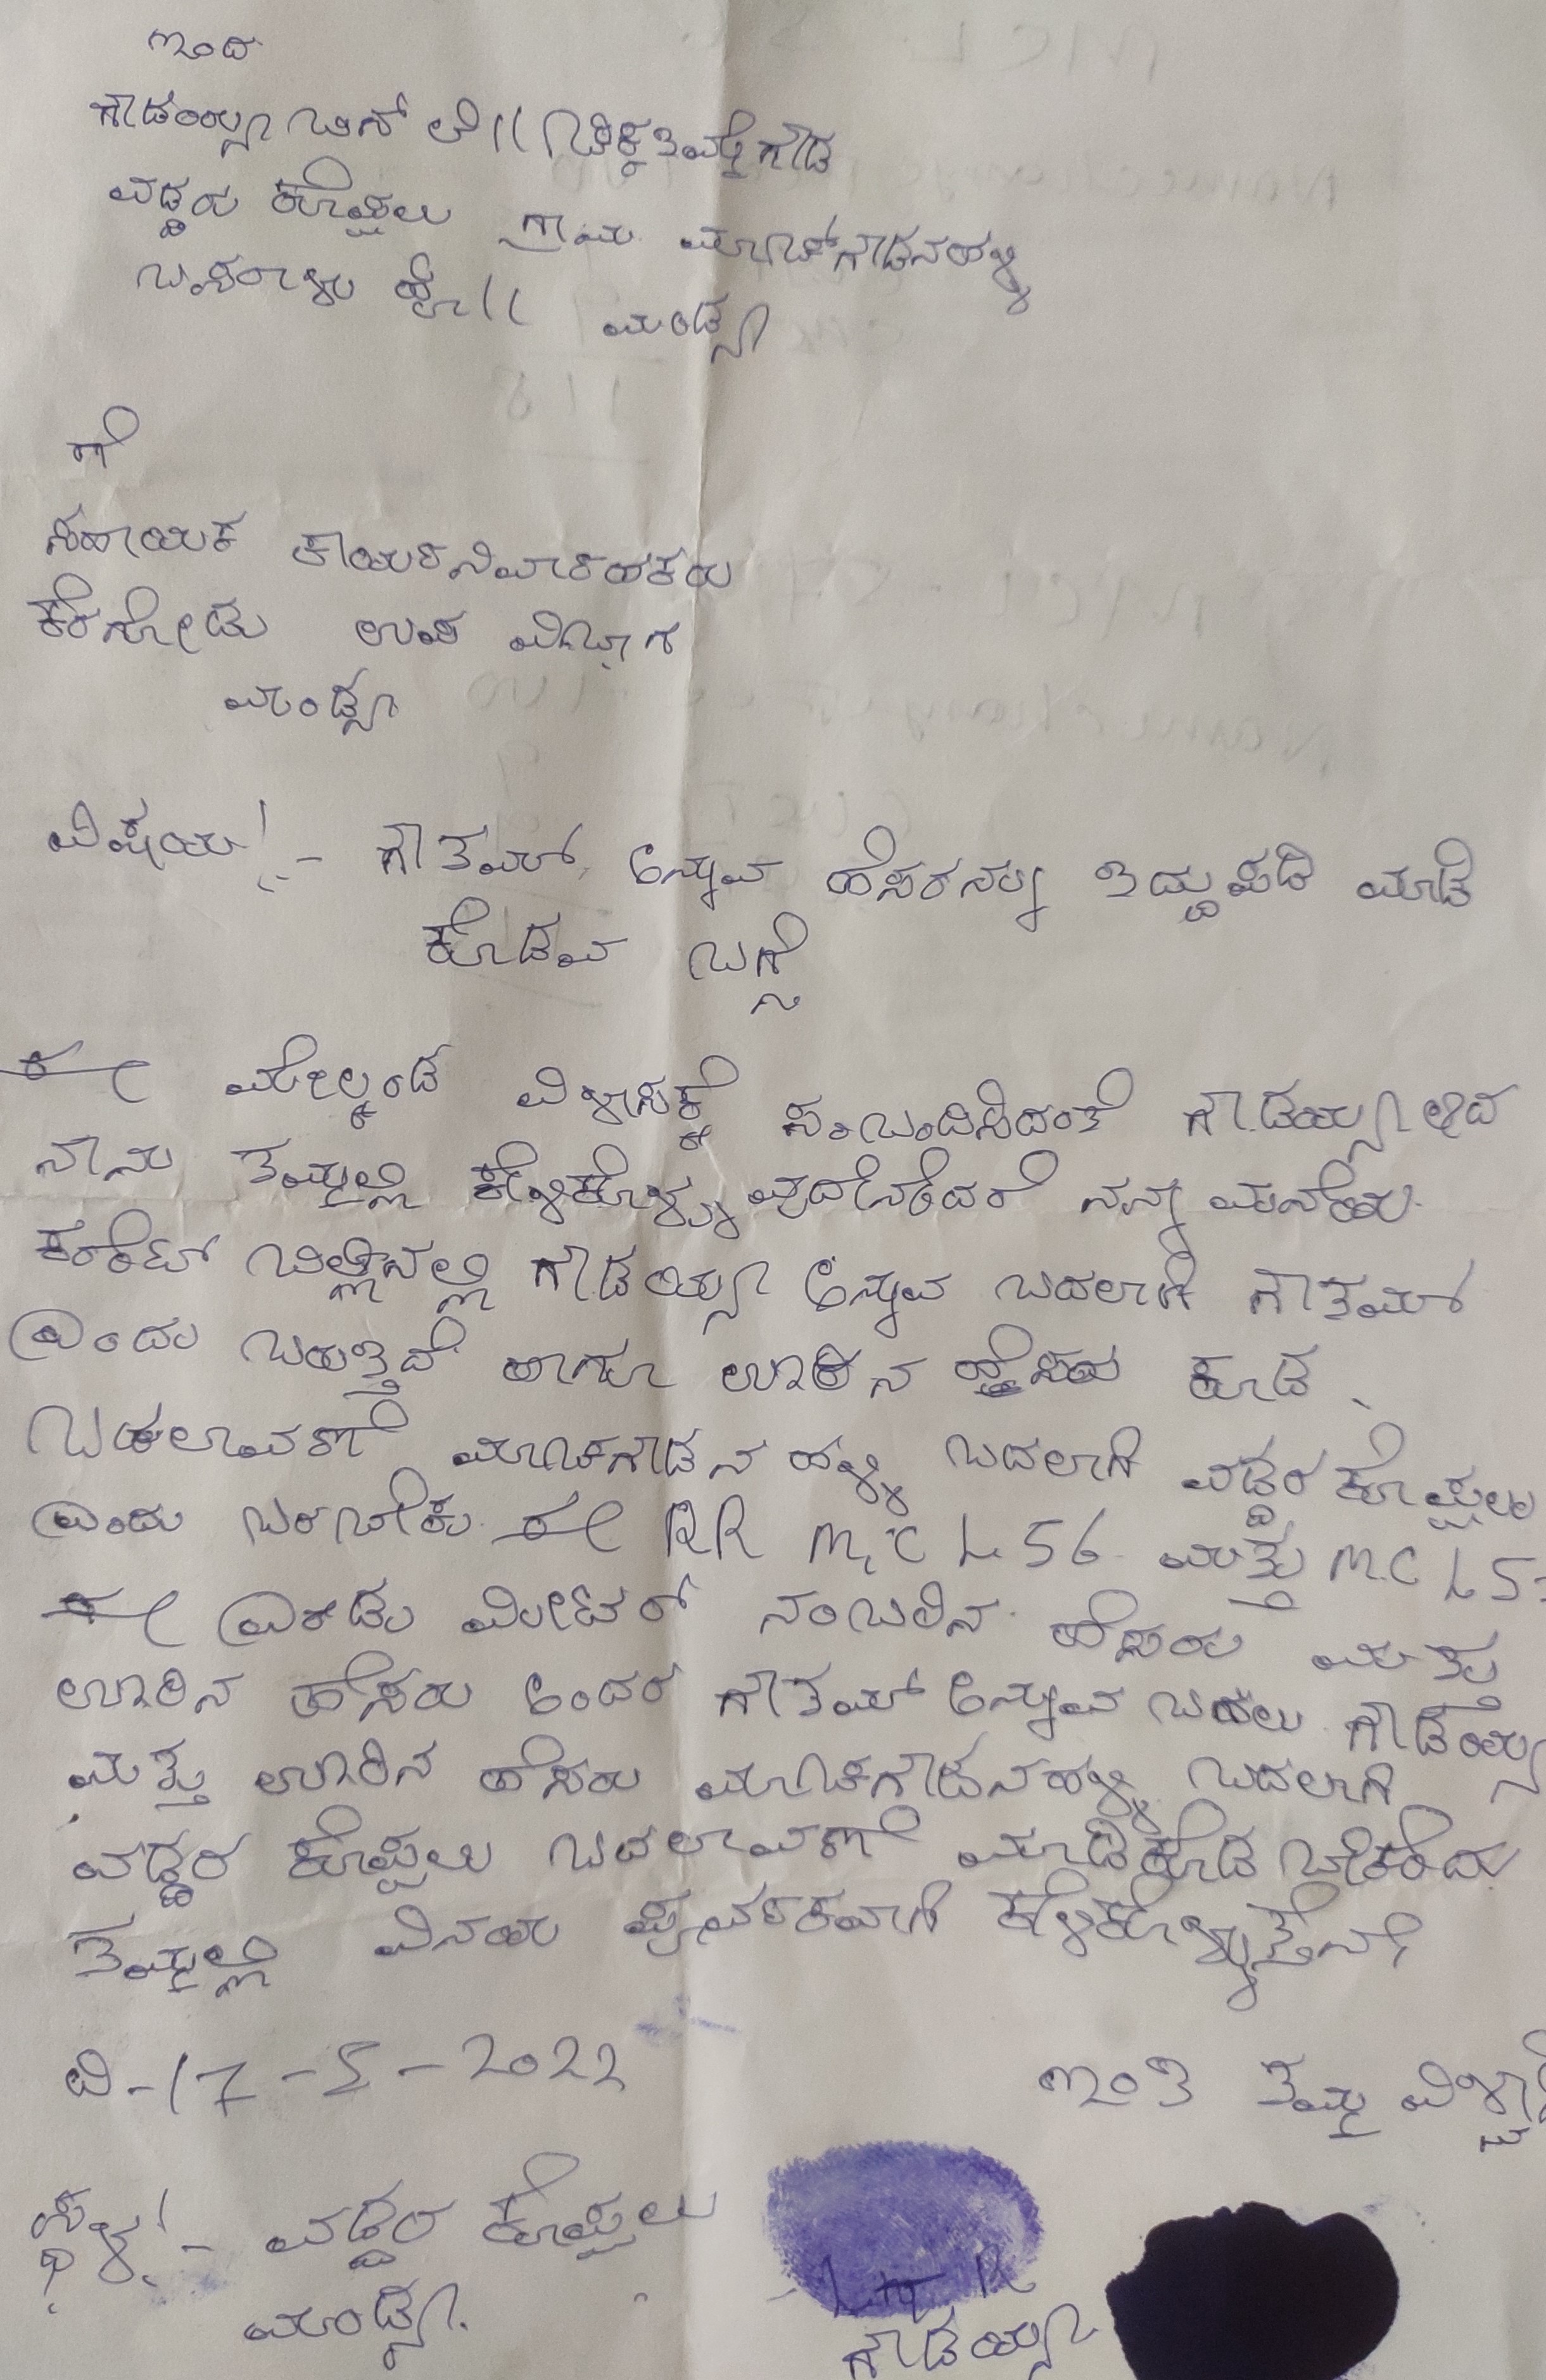 ಇಂದ
ಗೌಡಯ್ಯಾ ಬಿನ್ ಲೇ|| ಚಿಕ್ಕತಿಮ್ಮೇಗೌಡ
ವಡ್ಡರ ಕೊಪ್ಪಲು ಗ್ರಾಮ ಮಾಚ್‌ಗೌಡನಹಳ್ಳಿ
ಬಸರಾಳು ಹೋ|| ಮಂಡ್ಯ
ಗೆ
ಸಹಾಯಕ ಕಾರ್ಯನಿರ್ವಾಹಕರು
ಕೆರಗೋಡು ಉಪ ವಿಭಾಗ
ಮಂಡ್ಯ
ವಿಷಯ:- ಗೌತಮ್ ಅನ್ನುವ ಹೆಸರನ್ನು ತಿದ್ದುಪಡಿ ಮಾಡಿ
ಕೊಡುವ ಬಗ್ಗೆ
ಈ ಮೇಲ್ಕಂಡ ವಿಳಾಸಕ್ಕೆ ಸಂಬಂದಿಸಿದಂತೆ ಗೌಡಯ್ಯಾ ಆದ
ನಾನು ತಮ್ಮಲ್ಲಿ ಕೇಳಿಕೊಳ್ಳುವುದೇನೆಂದರೆ ನನ್ನ ಮನೆಯ
ಕರೆಂಟ್ ಬಿಲ್ಲಿನಲ್ಲಿ ಗೌಡಯ್ಯಾ ಅನ್ನುವ ಬದಲಾಗಿ ಗೌತಮ್
ಎಂದು ಬರುತ್ತಿದೆ ಹಾಗೂ ಊರಿನ ಹೆಸರು ಕೂಡ
ಬದಲಾವಣೆ ಮಾಚಗೌಡನ ಹಳ್ಳಿ ಬದಲಾಗಿ ವಡ್ಡರ ಕೊಪ್ಪಲು
ಎಂದು ಬರಬೇಕು ಈ RR M,C L 56 ಮತ್ತು M.C L 5
ಈ ಎರಡು ಮೀಟರ್ ನಂಬರಿನ ಹೆಸರು ಮತ್ತು
ಊರಿನ ಹೆಸರು ಅಂದರೆ ಗೌತಮ್ ಅನ್ನುವ ಬದಲು ಗೌಡಯ್ಯ
ಮತ್ತು ಊರಿನ ಹೆಸರು ಮಾಚಗೌಡನಹಳ್ಳಿ ಬದಲಾಗಿ
ವಡ್ಡರ ಕೊಪ್ಪಲು ಬದಲಾವಣೆ ಮಾಡಿಕೊಡ ಬೇಕೆಂದು
ತಮ್ಮಲ್ಲಿ ವಿನಯ ಪೂರ್ವಕವಾಗಿ ಕೇಳಿಕೊಳ್ಳುತ್ತೇನೆ
ದಿ-17-5-2022
ಇಂತಿ ತಮ್ಮ
ಸ್ಥಳ:- ವಡ್ಡರ ಕೊಪ್ಪಲು
ಮಂಡ್ಯ.
ಗೌಡಯ್ಯಾ